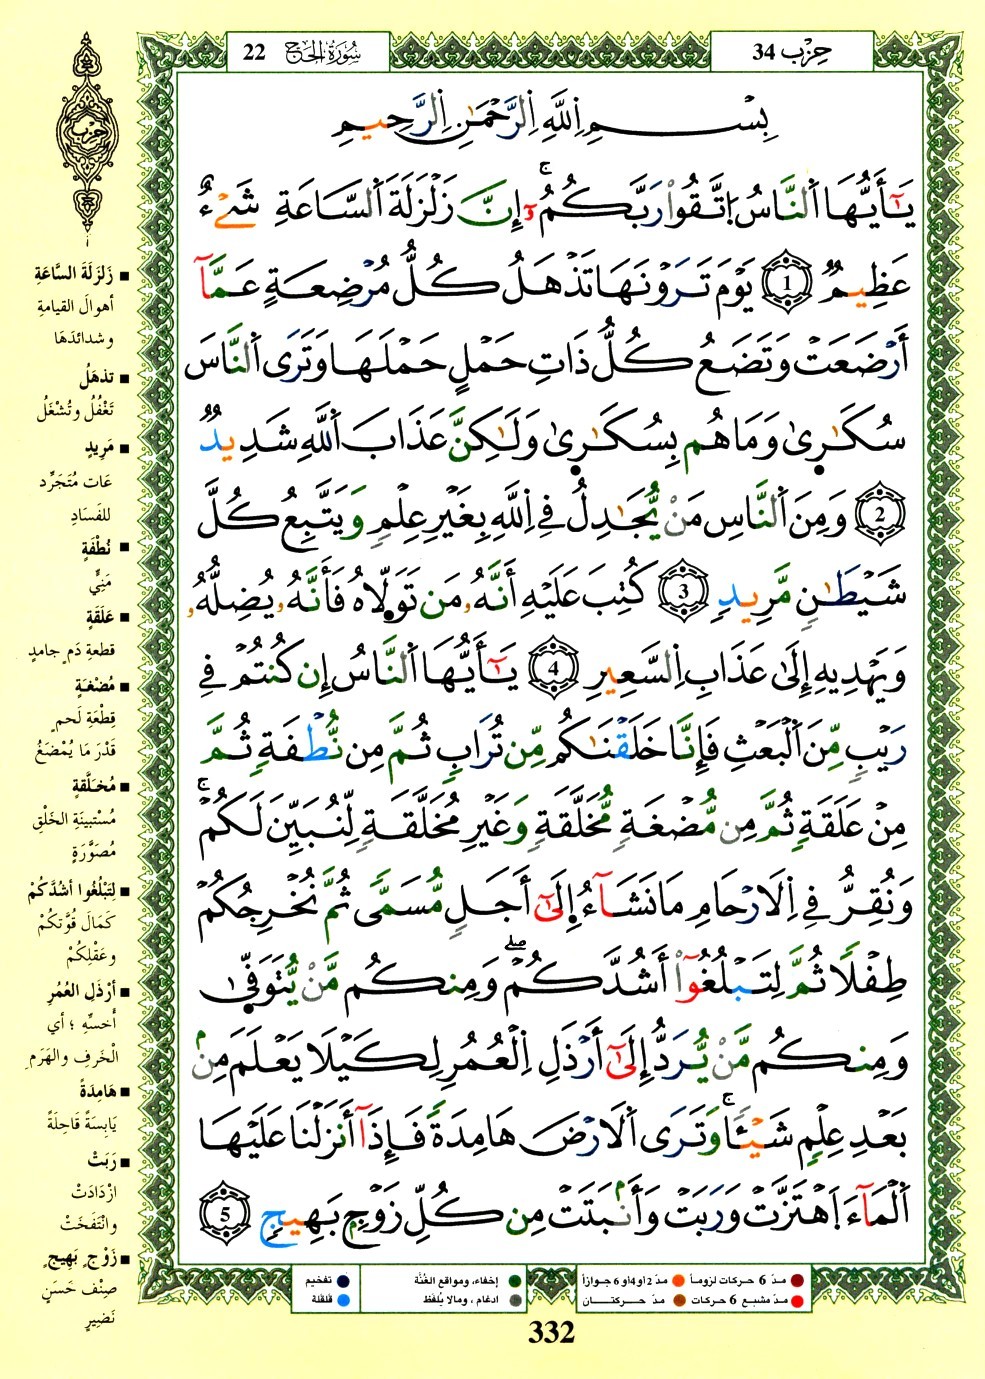 سُورَةُ الحَجِّ 22
حِزْب 34
بِسْمِ اِ۬للَّهِ اِ۬لرَّحْمَٰنِ اِ۬لرَّحِيمِ
يَٰٓأَيُّهَا اَ۬لنَّاسُ اُ۪تَّقُواْ رَبَّكُمُۥٓۚ إِنَّ زَلْزَلَةَ اَ۬لسَّاعَةِ شَےْءٌ
عَظِيمٌ 1 يَوْمَ تَرَوْنَهَا تَذْهَلُ كُلُّ مُرْضِعَةٍ عَمَّآ
أَرْضَعَتْ وَتَضَعُ كُلُّ ذَاتِ حَمْلٍ حَمْلَهَا وَتَرَى اَ۬لنَّاسَ
سُكَٰرۭيٰ وَمَا هُم بِسُكَٰرۭيٰ وَلَٰكِنَّ عَذَابَ اَ۬للَّهِ شَدِيدٌ
2 وَمِنَ اَ۬لنَّاسِ مَنْ يُّجَٰدِلُ فِے اِ۬للَّهِ بِغَيْرِ عِلْمٍ وَيَتَّبِعُ كُلَّ
شَيْطَٰنٍ مَّرِيدٍ 3 كُتِبَ عَلَيْهِ أَنَّهُۥ مَن تَوَلّ۪اهُ فَأَنَّهُۥ يُضِلُّهُۥ
وَيَهْدِيهِ إِلَىٰ عَذَابِ اِ۬لسَّعِيرِ 4 يَٰٓأَيُّهَا اَ۬لنَّاسُ إِن كُنتُمْ فِے
رَيْبٍ مِّنَ اَ۬لْبَعْثِ فَإِنَّا خَلَقْنَٰكُم مِّن تُرَابٍ ثُمَّ مِن نُّطْفَةٍ ثُمَّ
مِنْ عَلَقَةٍ ثُمَّ مِن مُّضْغَةٍ مُّخَلَّقَةٍ وَغَيْرِ مُخَلَّقَةٍ لِّنُبَيِّنَ لَكُمْۚ
وَنُقِرُّ فِے اِ۬لَارْحَامِ مَا نَشَآءُ اِ۪لَىٰٓ أَجَلٍ مُّسَمّٗى ثُمَّ نُخْرِجُكُمْ
طِفْلًا ثُمَّ لِتَبْلُغُوٓاْ أَشُدَّكُمْۖ وَمِنكُم مَّنْ يُّتَوَفّ۪ىٰ
وَمِنكُم مَّنْ يُّرَدُّ إِلَىٰٓ أَرْذَلِ اِ۬لْعُمُرِ لِكَيْلَا يَعْلَمَ مِنۢ
بَعْدِ عِلْمٍ شَيْـًٔاۚ وَتَرَى اَ۬لَارْضَ هَامِدَةً فَإِذَآ أَنزَلْنَا عَلَيْهَا
اَ۬لْمَآءَ اَ۪هْتَزَّتْ وَرَبَتْ وَأَنۢبَتَتْ مِن كُلِّ زَوْجٍ بَهِيجٍ 5
حزب
▪ زَلزَلَةَ السَّاعَةِ
أهوالَ القيامةِ
وشدائدَهَا
▪ تذهَلُ
تَغْفُلُ وتُشْغَلُ
▪ مَرِيدٍ
عَات مُتَجَرِّد
للفَسَادِ
▪ نُطْفَةٍ
مَنِيٍّ
▪ عَلَقَةٍ
قطعةِ دَمٍ جامدٍ
▪ مُضْغَةٍ
قِطْعَةِ لَحمٍ
قَدْرَ مَا يُمْضَغُ
▪ مُخَلَّقَةٍ
مُسْتبينَةِ الخَلْقِ
مُصَوَّرَةٍ
▪ لِتَبْلُغُوا أشُدَّكُمْ
كَمَالَ قُوَّتِكُمْ
وعَقْلِكُمْ
▪ أرْذَلِ العُمُرِ
أخسِّهِ ؛ أي
الْخَرفِ والهَرَمِ
▪ هَامِدَةً
يَابِسَةً قَاحِلَةً
▪ رَبَتْ
ازْدَادَتْ
وانْتَفَخَتْ
▪ زَوْجٍ بَهِيجٍ
صِنْفٍ حَسَنٍ
نَضِيرٍ
مدّ 6 حركات لزوماً مدّ 2 أو 4 أو 6 جوازاً
مدّ مشبع 6 حركات مدّ حركتان
إخفاء، ومواقع الغُنَّة
ادغام ، ومالا يُلفَظ
تفخيم
قلقلة
332